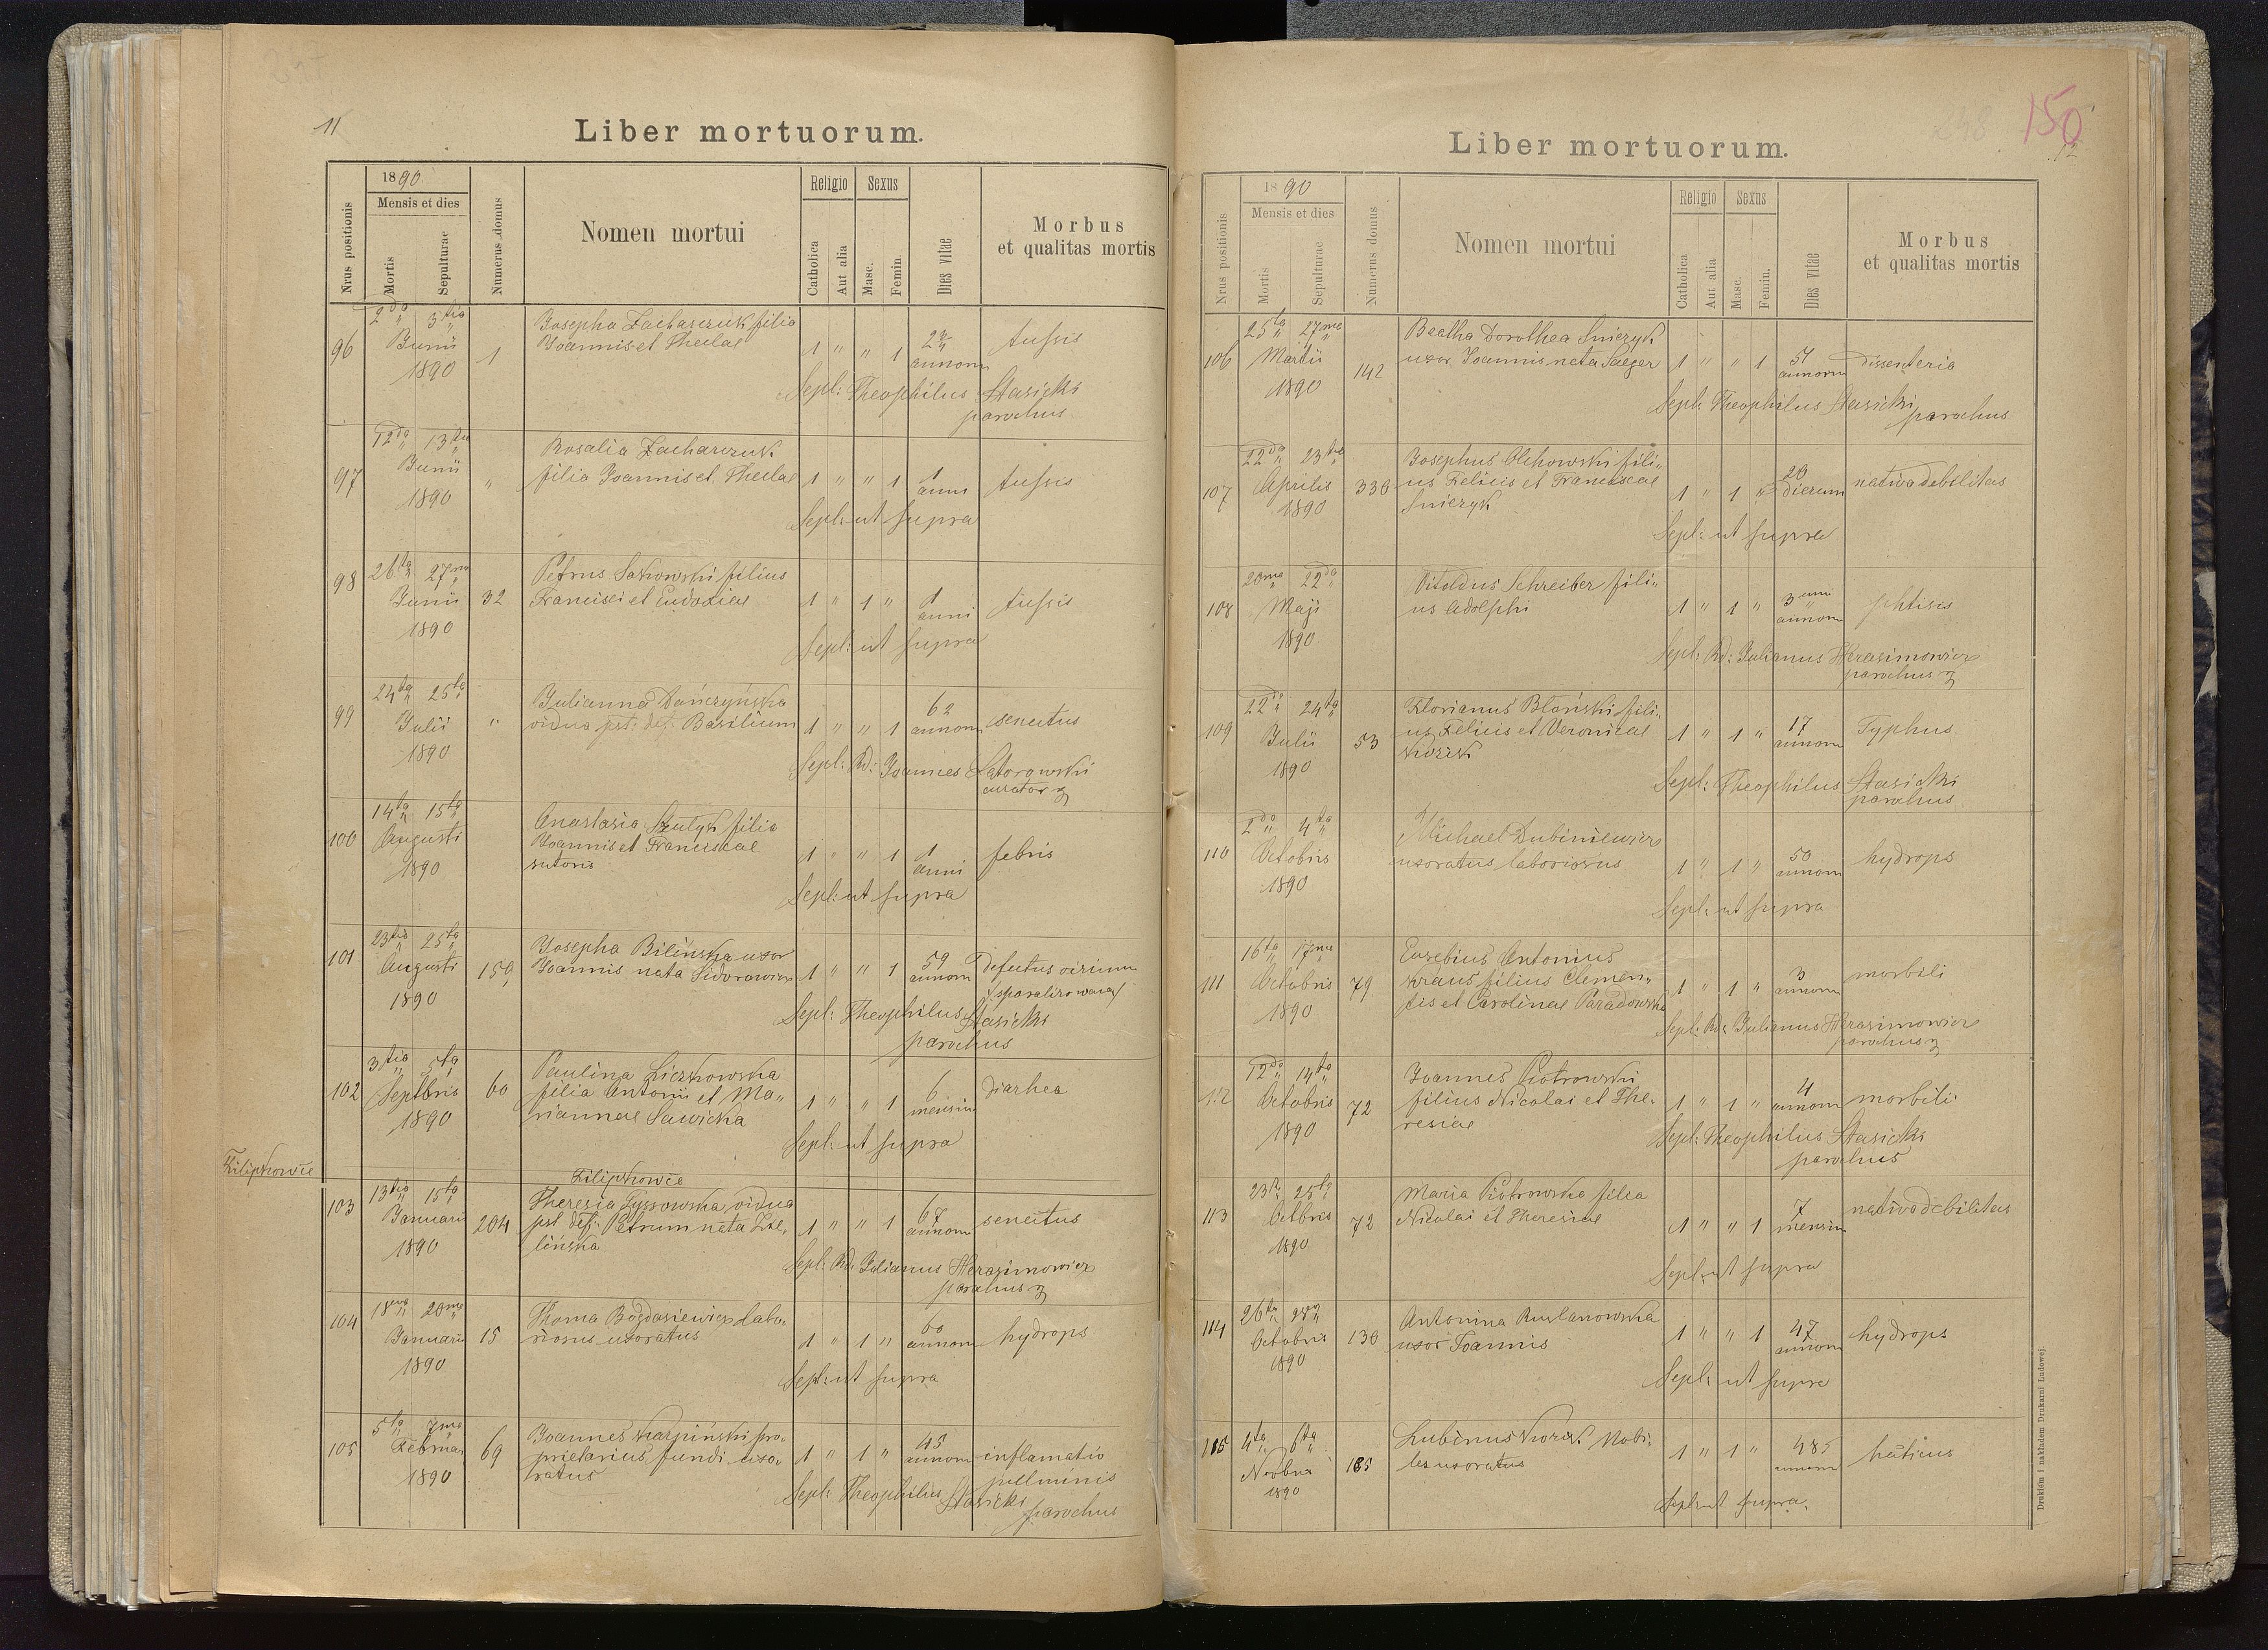 11
Liber mortuorum.
1890
Mensis et dies
Nrus positionis
Mortis
Sepulturae
Numerus domus
Nomen mortui
Religio
Sexus
Catholica
Aut alia
Masc.
Femin
Dies vitae
Morbus
et qualitas mortis
96
2da 3tia
Junii
1890
1
Josepha Zacharczuk filia
Joannis et Theclae
1 " " 1
annorum
tussis
Sepl: Theophilus Stasicki
parochus
97
12da 13tia
Junii
1890
"
Rosalia Zacharczuk
filia Joannis et Theclae
1 " " 1
1
anni
tussis
Sepl: ut supra
98
26ta 27ma
Junii
1890
32
Petrus Sakowski filius
Francisci et Eudoxiae
1 " 1 "
1
anni
tussis
Sepl: ut supra
99
24ta 25ta
Julii
1890
"
Julianna Dańczyńska
vidua pst: def: Basilium
1 " " 1
62
annorum
senectus
Sepl: Rd: Joannes Zatorowski
curator
100
14ta 15ta
Augusti
1890
Anastasia Szutyk filia
Joannis et Franciscae
sutoris
1 " " 1
1
anni
febris
Sepl: ut supra
101
23tia 25ta
Augusti
1890
159
Josepha Bilińska uxor
Joannis nata Sidorowicz
1 " " 1
59
annorum
defectus virium
Sepl: Theophilus Stasicki
parochus
102
3tia 5ta
Septbris
1890
60
Paulina Liczkowska
filia Antonii et Ma„
riannae Sawicka
1 " " 1
6
mensium
diarhea
Sepl: ut supra
Filipkowce
Filipkowce
103
13tia 15ta
Januarii
1890
204
Theresia Tyssowska vidua
pst def: Petrum nata Zie„
lińska
1 " " 1
67
annorum
senectus
Sepl: Rd: Julianus Herasimowicz
parochus
104
18va 20ma
Januarii
1890
15
Thoma Bogdasiewicz labo„
riosus uxoratus
1 " 1 "
60
annorum
hydrops
Sepl: ut supra
105
5ta 7ma
Februar
1890
69
Joannes Karpiński pro„
prietarius fundi uxo„
ratus
1 " 1 "
45
annorum
inflamatio
pullminis
Sepl: Theophilus Stasicki
parochus
150
12
Liber mortuorum.
1890
Mensis et dies
Nrus positionis
Mortis
Sepulturae
Numerus domus
Nomen mortui
Religio
Sexus
Catholica
Aut alia
Masc.
Femin.
Dies vitae
Morbus
et qualitas mortis
106
25ta 27ma
Martii
1890
142
Beatha Dorothea Sniezyk
uxor Joannis nata Saeger
1 " " 1
51
annorum
dissenteria
Sepl: Theophilus Stasicki
parochus
107
22da 23tia
Aprilis
1890
330
Josephus Olchowski fili„
us Felicis et Franciscae
Sniezyk
1 " 1 "
20
dierum
nativa debilitas
Sepl: ut supra
108
20ma 22da
Maji
1890
Vitoldus Schreiber fili„
us Adolphi
1 " 1 "
3
annorum
phtisis
Sepl: Rd: Julianus Herasimowicz
parochus
109
22da 24ta
Julii
1890
53
Florianus Błański fili„
us Felicis et Veronicae
1 " 1 "
17
annorum
Typhus
Sepl: Theophilus Stasicki
parochus
110
2da 4ta
Octobris
1890
Michael Dubiniewicz
uxoratus laboriosus
1 " 1 "
50
annorum
hydrops
Sepl: ut supra
111
16ta 17ma
Octobris
1890
79
Eusebius Antonius
Kraus filius Clemen„
tis et Carolinae Paradowska
1 " 1 "
3
annorum
morbili
Sepl: Rd: Julianus Herasimowicz
parochus
112
12da 14ta
Octobris
1890
72
Joannes Piotrowski
filius Nicolai et The„
resiae
1 " 1 "
4
annorum
morbili
Sepl: Theophilus Stasicki
parochus
113
23tia 25ta
Octbris
1890
72
Maria Piotrowska filia
Nicolai et Theresiae
1 " " 1
7
mensium
nativa debilitas
Sepl: ut supra
114
26ta
Octobris
1890
130
Antonina Ruslanowska
uxor Joannis
1 " " 1
47
annorum
hydrops
Sepl: ut supra
115
4ta 6ta
Novbris
1890
185
Lubinus Mobi„
les uxoratus
1 " 1 "
annorum
Sepl: ut supra
Drukiem i nakładem Drukarni Ludowej.